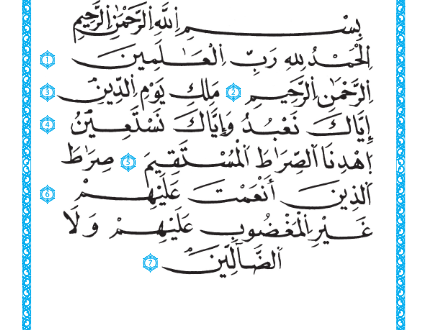 بِسْمِ اللَّهِ الرَّحْمَٰنِ الرَّحِيمِ
الْحَمْدُ لِلهِ رَبِّ الْعَٰلَمِينَ 1
الرَّحْمَٰنِ الرَّحِيمِ 2 مَلِكِ يَوْمِ الدِّينِ 3
إِيَّاكَ نَعْبُدُ وَإِيَّاكَ نَسْتَعِينُ 4
اهْدِنَا الصِّرَاطَ الْمُسْتَقِيمَ 5 صِرَاطَ
الذِينَ أَنْعَمْتَ عَلَيْهِمْ 6
غَيْرِ الْمَغْضُوبِ عَلَيْهِمْ وَلَا
الضَّآلِّينَ 7